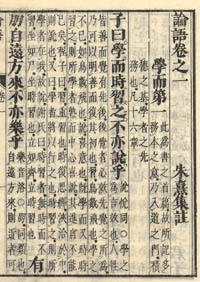 論語卷之一
朱熹集註
學而第一
此為書之首篇故所記多
務本之意乃入道之門積
德之基學者之先
務也凡十六章
子曰學而時習之不亦說乎
說悅同○學之
為言效也人性
皆善而覺有先後後覺者必效先覺之所為
乃可以明善而復其初也習鳥數飛也學之
不已如鳥數飛也說喜意也既學而又時時
習之則所學者熟而中心喜說其進自不能
已矣程子曰習重習也時復思繹浹洽於中
則說也又曰學者將以行之也時習之則所
學者在我故說謝氏曰時習者無時而不
習坐如尸坐時習也立如齊立時習也
有
朋自遠方來不亦樂乎
樂音洛○朋同類也
自遠方來則近者可